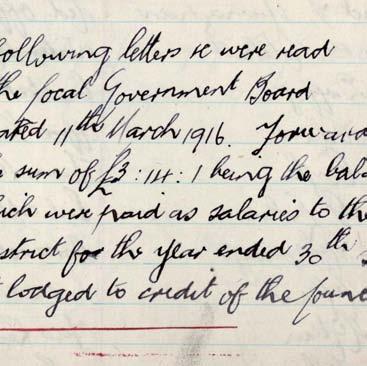 following letters re were read
the Local Government Board
dated 11th March 1916. Forward
sum of £3 : 14 : 1 being the bala
hich were paid as salaries to the
strict for the year ended 30th
lodged to credit of the Counc